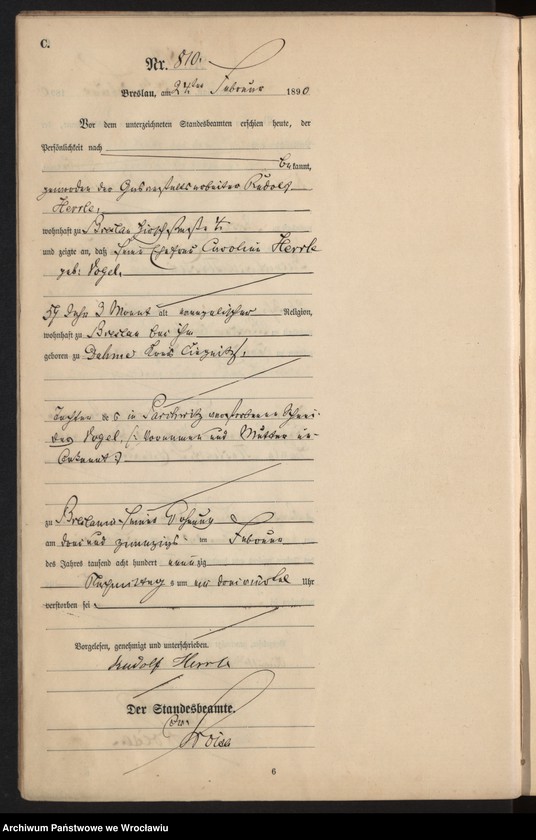 C.
Nr. 810.
Breslau, am 24ten Februar 1890
Vor dem unterzeichneten Standesbeamten erschien heute, der
Persönlichkeit nach
bekannt,
geworden der Gasanstaltsarbeiter Rudolf
Herrle,
wohnhaft zu Breslau
und zeigte an, daß seine Ehefrau Caroline Herrle
geb: Vogel,
59 Jahr 3 Monat alt evangelischer Religion,
wohnhaft zu Breslau bei ihm
geboren zu Dahme Kreis Liegnitz,
Tochter des in Parchwitz verstorbenen
Vogel, (: Vornamen und Mutter un-
bekannt :)
zu Breslau in seiner Wohnung
am drei und zwanzigs ten Februar
des Jahres tausend acht hundert neunzig
Nachmittag um ein dreiviertel Uhr
verstorben sei.
Vorgelesen, genehmigt und unterschrieben.
Rudolf Herrle
Der Standesbeamte.
6
Archiwum Państwowe we Wrocławiu